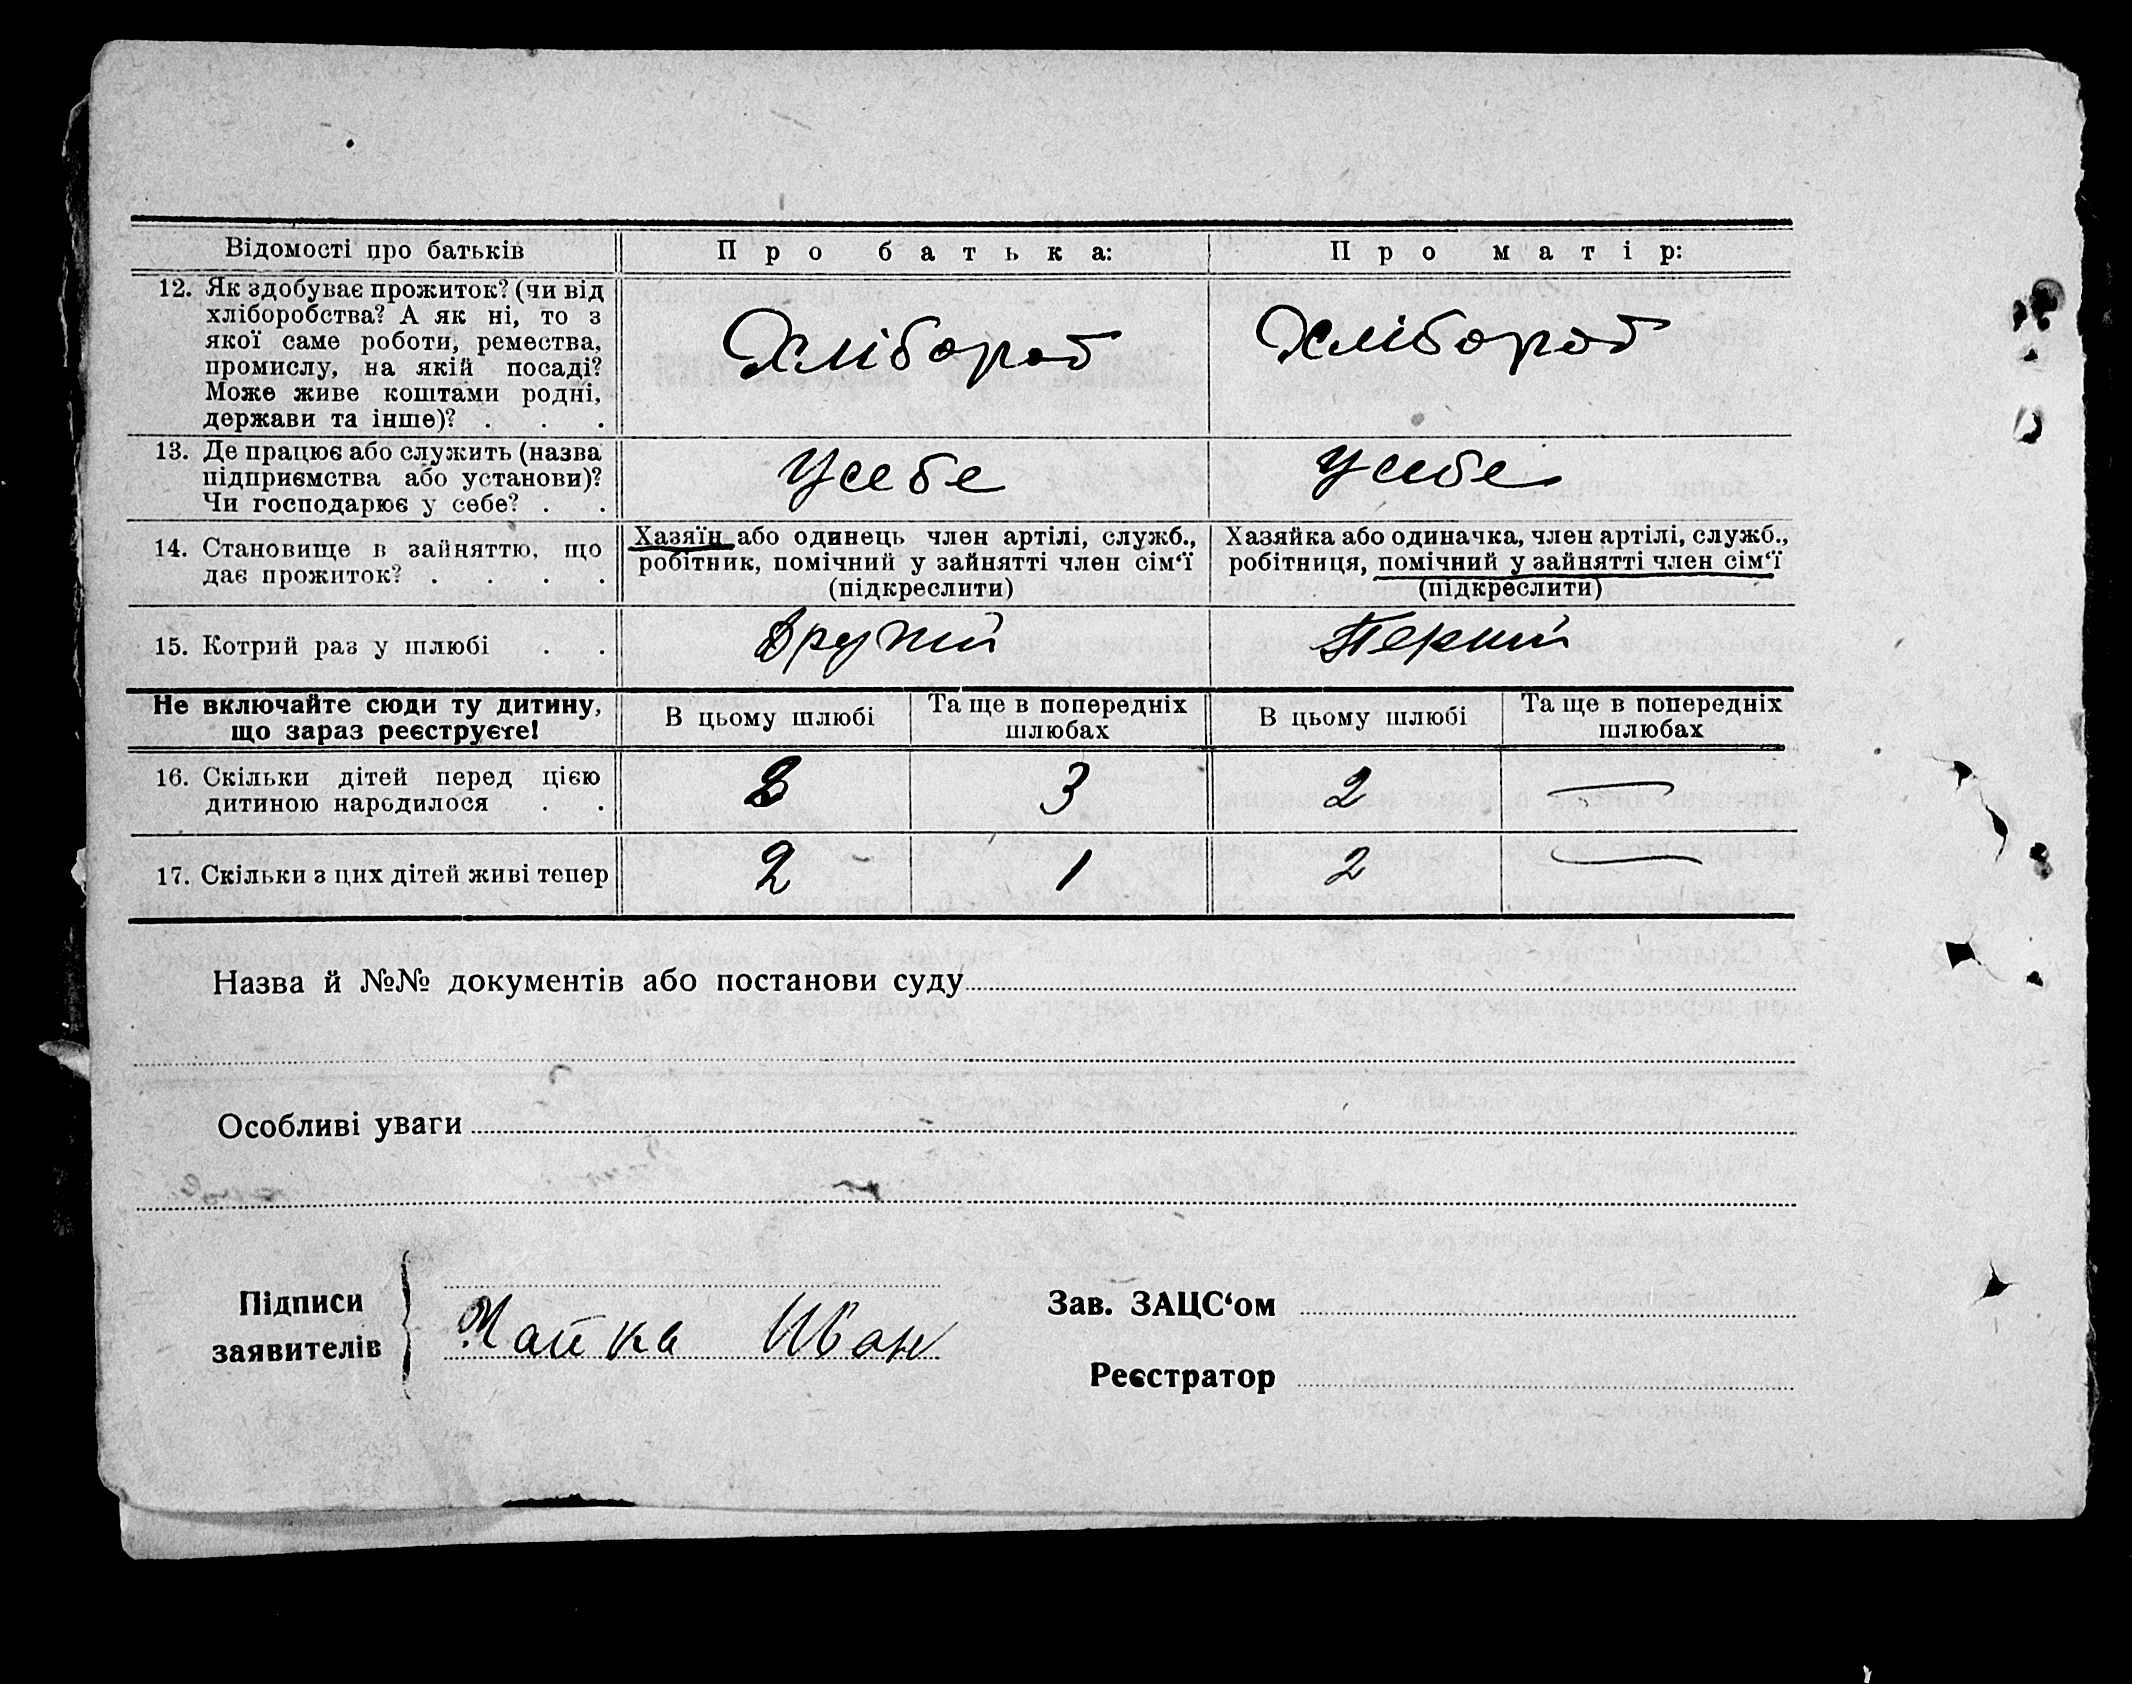 Відомості про батьків П р о б а т ь к а: П р о м а т і р:
12. Як здобуває прожиток? (чи від
хліборобства? А як ні, то з
якої саме роботи, ремества,
промислу, на якій посаді?
Може живе коштами родні,
держави та інше)? . . .
Хлібороб Хлібороб
13. Де працює або служить (назва
підприємства або установи)?
Чи господарює у себе? . .
У себе У себе
14. Становище в зайняттю, що
дає прожиток? . . . .
Хазяїн або одинець член артілі, служб.,
робітник, помічний у зайнятті член сім‘ї
(підкреслити)
Хазяйка або одиначка, член артілі, служб.,
робітниця, помічний у зайнятті член сім‘ї
(підкреслити)
15. Котрий раз у шлюбі . . Другий Перший
Не включайте сюди ту дитину,
що зараз реєструєте!
В цьому шлюбі Та ще в попередніх
шлюбах
В цьому шлюбі Та ще в попередніх
шлюбах
16. Скільки дітей перед цією
дитиною народилося . .
2 3 2 —
17. Скільки з цих дітей живі тепер 2 1 2 —
Назва й №№ документів або постанови суду
Особливі уваги
Підписи
заявителів
Чайка Иван
Зав. ЗАЦС‘ом
Реєстратор